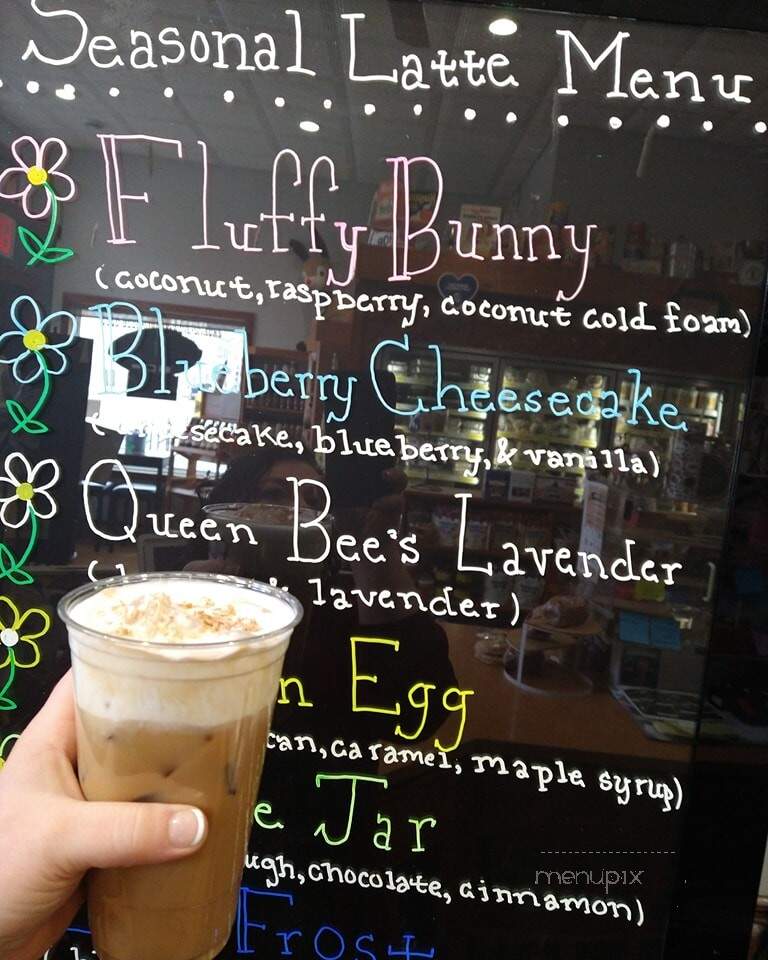 Seasonal Latte Menu
Fluffy Bunny
(coconut, raspberry, coconut cold foam)
Blueberry Cheesecake
(cheesecake, blueberry, & vanilla)
Queen Bee's Lavender
lavender)
n Egg
can, caramel, maple syrup)
e Jar
ugh, chocolate, cinnamon)
Frost
menupix